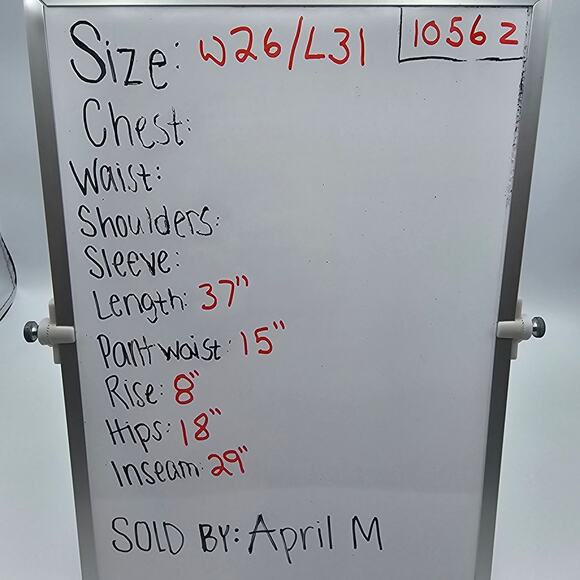 Size: W26/L31 10562
Chest:
Waist:
Shoulders:
Sleeve:
Length: 37"
Pant waist: 15"
Rise: 8"
Hips: 18"
Inseam: 29"
SOLD BY: April M